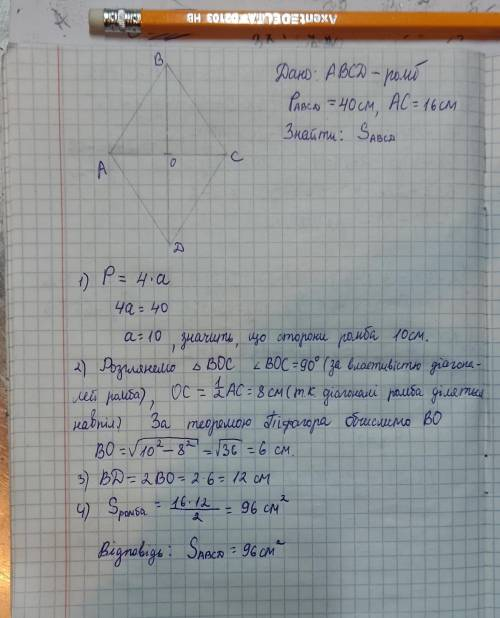 Axent DELTA D2103 HB
B
A
O
C
D
Дано: ABCD - ромб
P_ABCD = 40 см, AC = 16 см
Знайти: S_ABCD
1) P = 4·a
4a = 40
a = 10, значить, що сторони ромба 10 см.
2) Розглянемо △ BOC ∠BOC = 90° (за властивістю діагона-
лей ромба), OC = 1/2 AC = 8 см (т.к діагоналі ромба діляться
навпіл) За теоремою Піфагора обчислимо BO
BO = √10² - 8² = √36 = 6 см.
3) BD = 2BO = 2·6 = 12 см
4) S ромба = 16·12/2 = 96 см²
Відповідь: S_ABCD = 96 см²